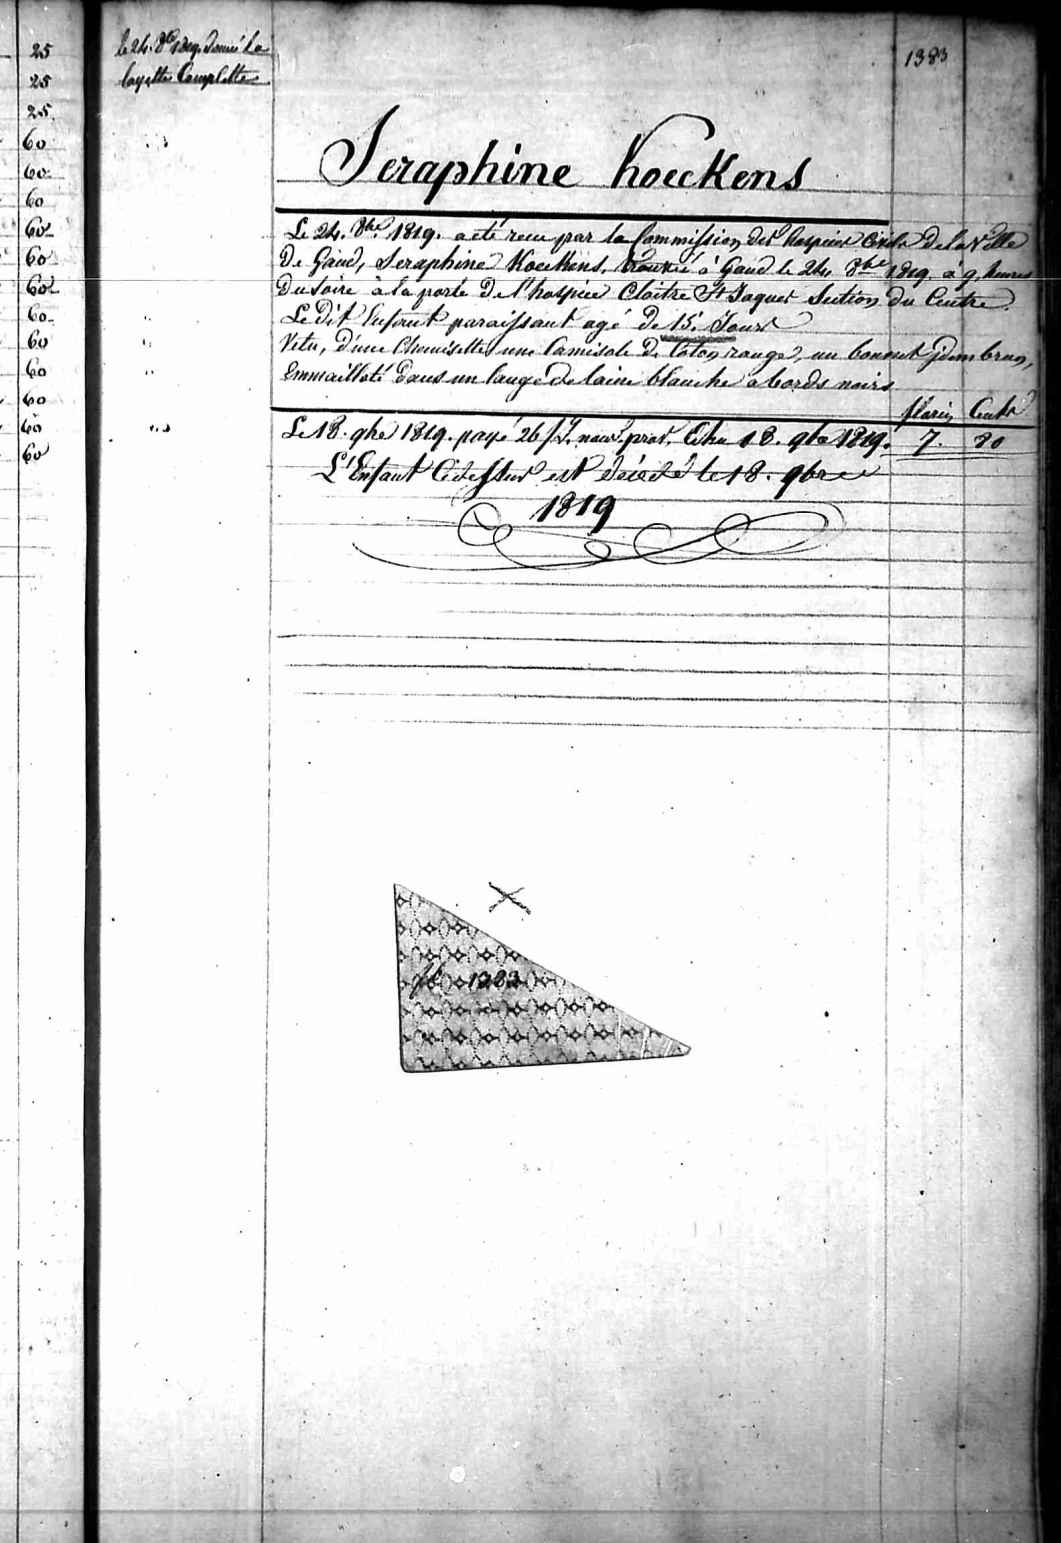 25
25
25.
60
60
60
60
60
60
60
60
60
60
60
60
le 24. 8bre 1819. donné La
layette Complette
1383
Seraphine Koeckens
Le 24. 8bre 1819. a été recu par la Commission des hospices Civils de la Ville
de Gand, Seraphine Koeckens, trouvée à Gand le 24 8bre 1819. à 9 heures
du Soire à la porte de l'hospice Cloître St Jaques Section du Centre.
Le dit Enfant paraissant agé de 15. Jours
Vetu, d'une Chemisette, une Camisole de Coton rouge, un bonnet idem brun,
Emmailloté dans un lange de laine blanche a bords noirs
florin Cents
Le 18. 9bre 1819. payé 26 Js. nour. prov. Echu 18. 9bre 1819. 7. 80
L'Enfant Ci dessus est décédé le 18. 9bre
1819
1383